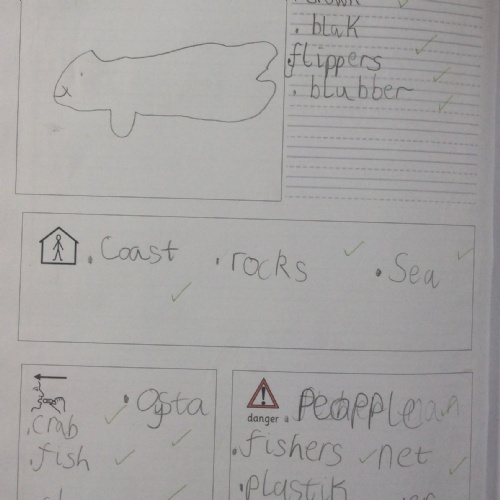 . blak
flippers
. blubber
. Coast . rocks . Sea
. crab
. fish
danger
. fishers net
. plastik